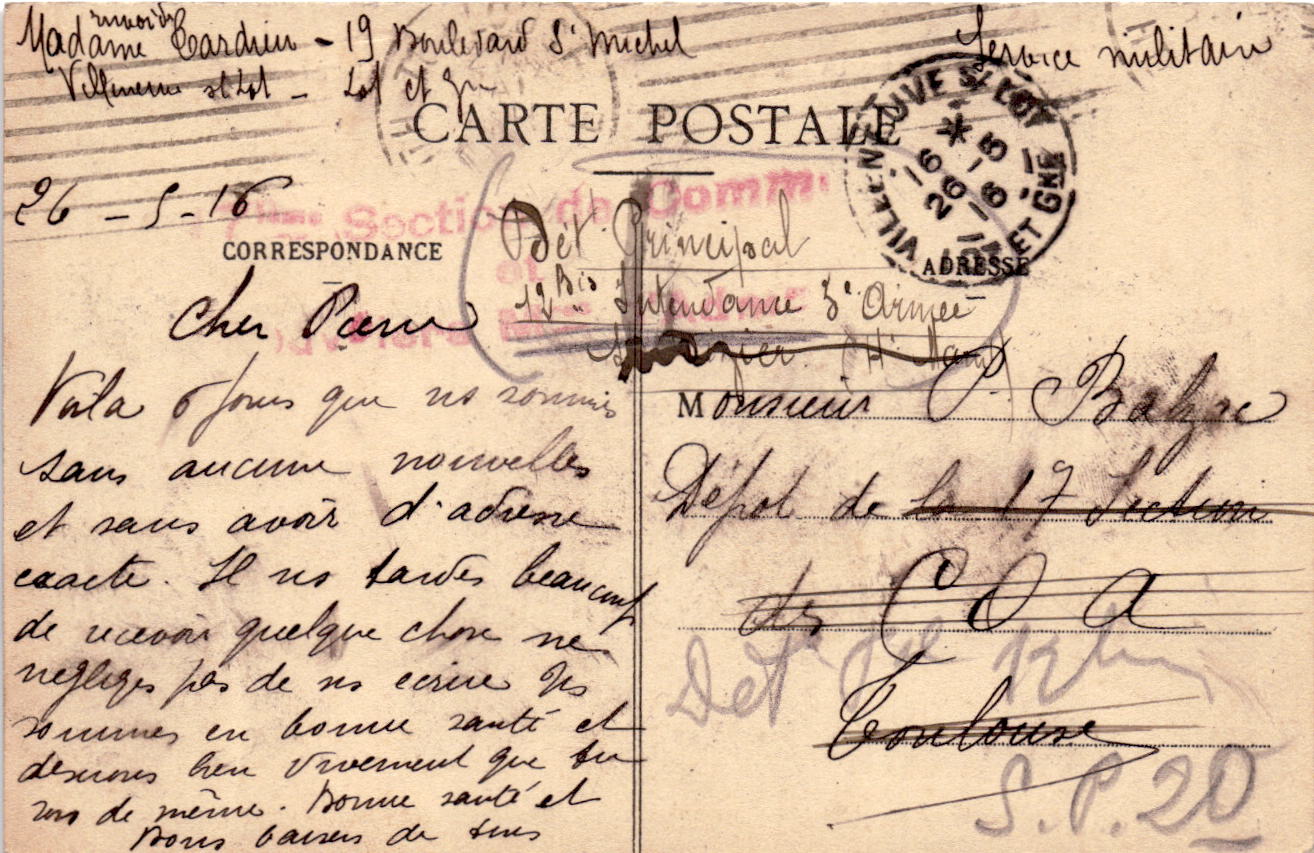 envoi de
Madame Tardieu - 19 Boulevard St Michel
Service militaire
Villeneuve st Lot - Lot et Gne
CARTE POSTALE
VILLENEUVE St LOT
LOT ET GNE
26 - 5
16
26 - 5 - 16
Section de Comm:
et
Ouvriers Adm
CORRESPONDANCE
ADRESSE
Dét Principal
12 Bis Intendance 3e Armée
Cher Pierre
Voila 6 jours que ns sommes
sans aucune nouvelles
et sans avoir d'adresse
exacte. Il ns tardes beaucoup
de recevoir quelque chose ne
negliges pas de ns ecrire Ns
sommes en bonne santé et
desirons bien vivement que tu
sois de même. Bonne santé et
Bons baisers de tous
Monsieur P. Balzac
Dépot de la 17 Section
des C O A
Toulouse
Det
S.P. 20